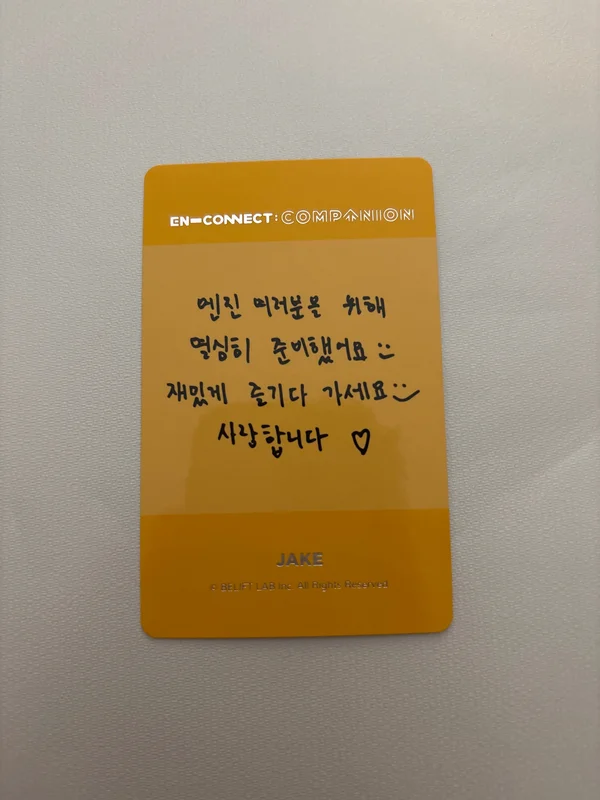 EN-CONNECT: COMPANION
엔진 여러분을 위해
열심히 준비했어요 :)
재밌게 즐기다 가세요 :)
사랑합니다 ♡
JAKE
© BELIFT LAB Inc. All Rights Reserved.